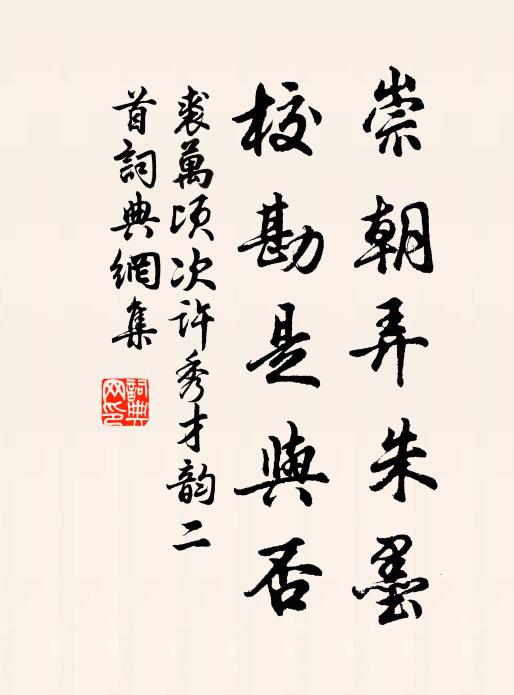 崇朝弄朱墨
校勘是與否
裘萬頃次許秀才韵二
首詞典網集
詞典网印